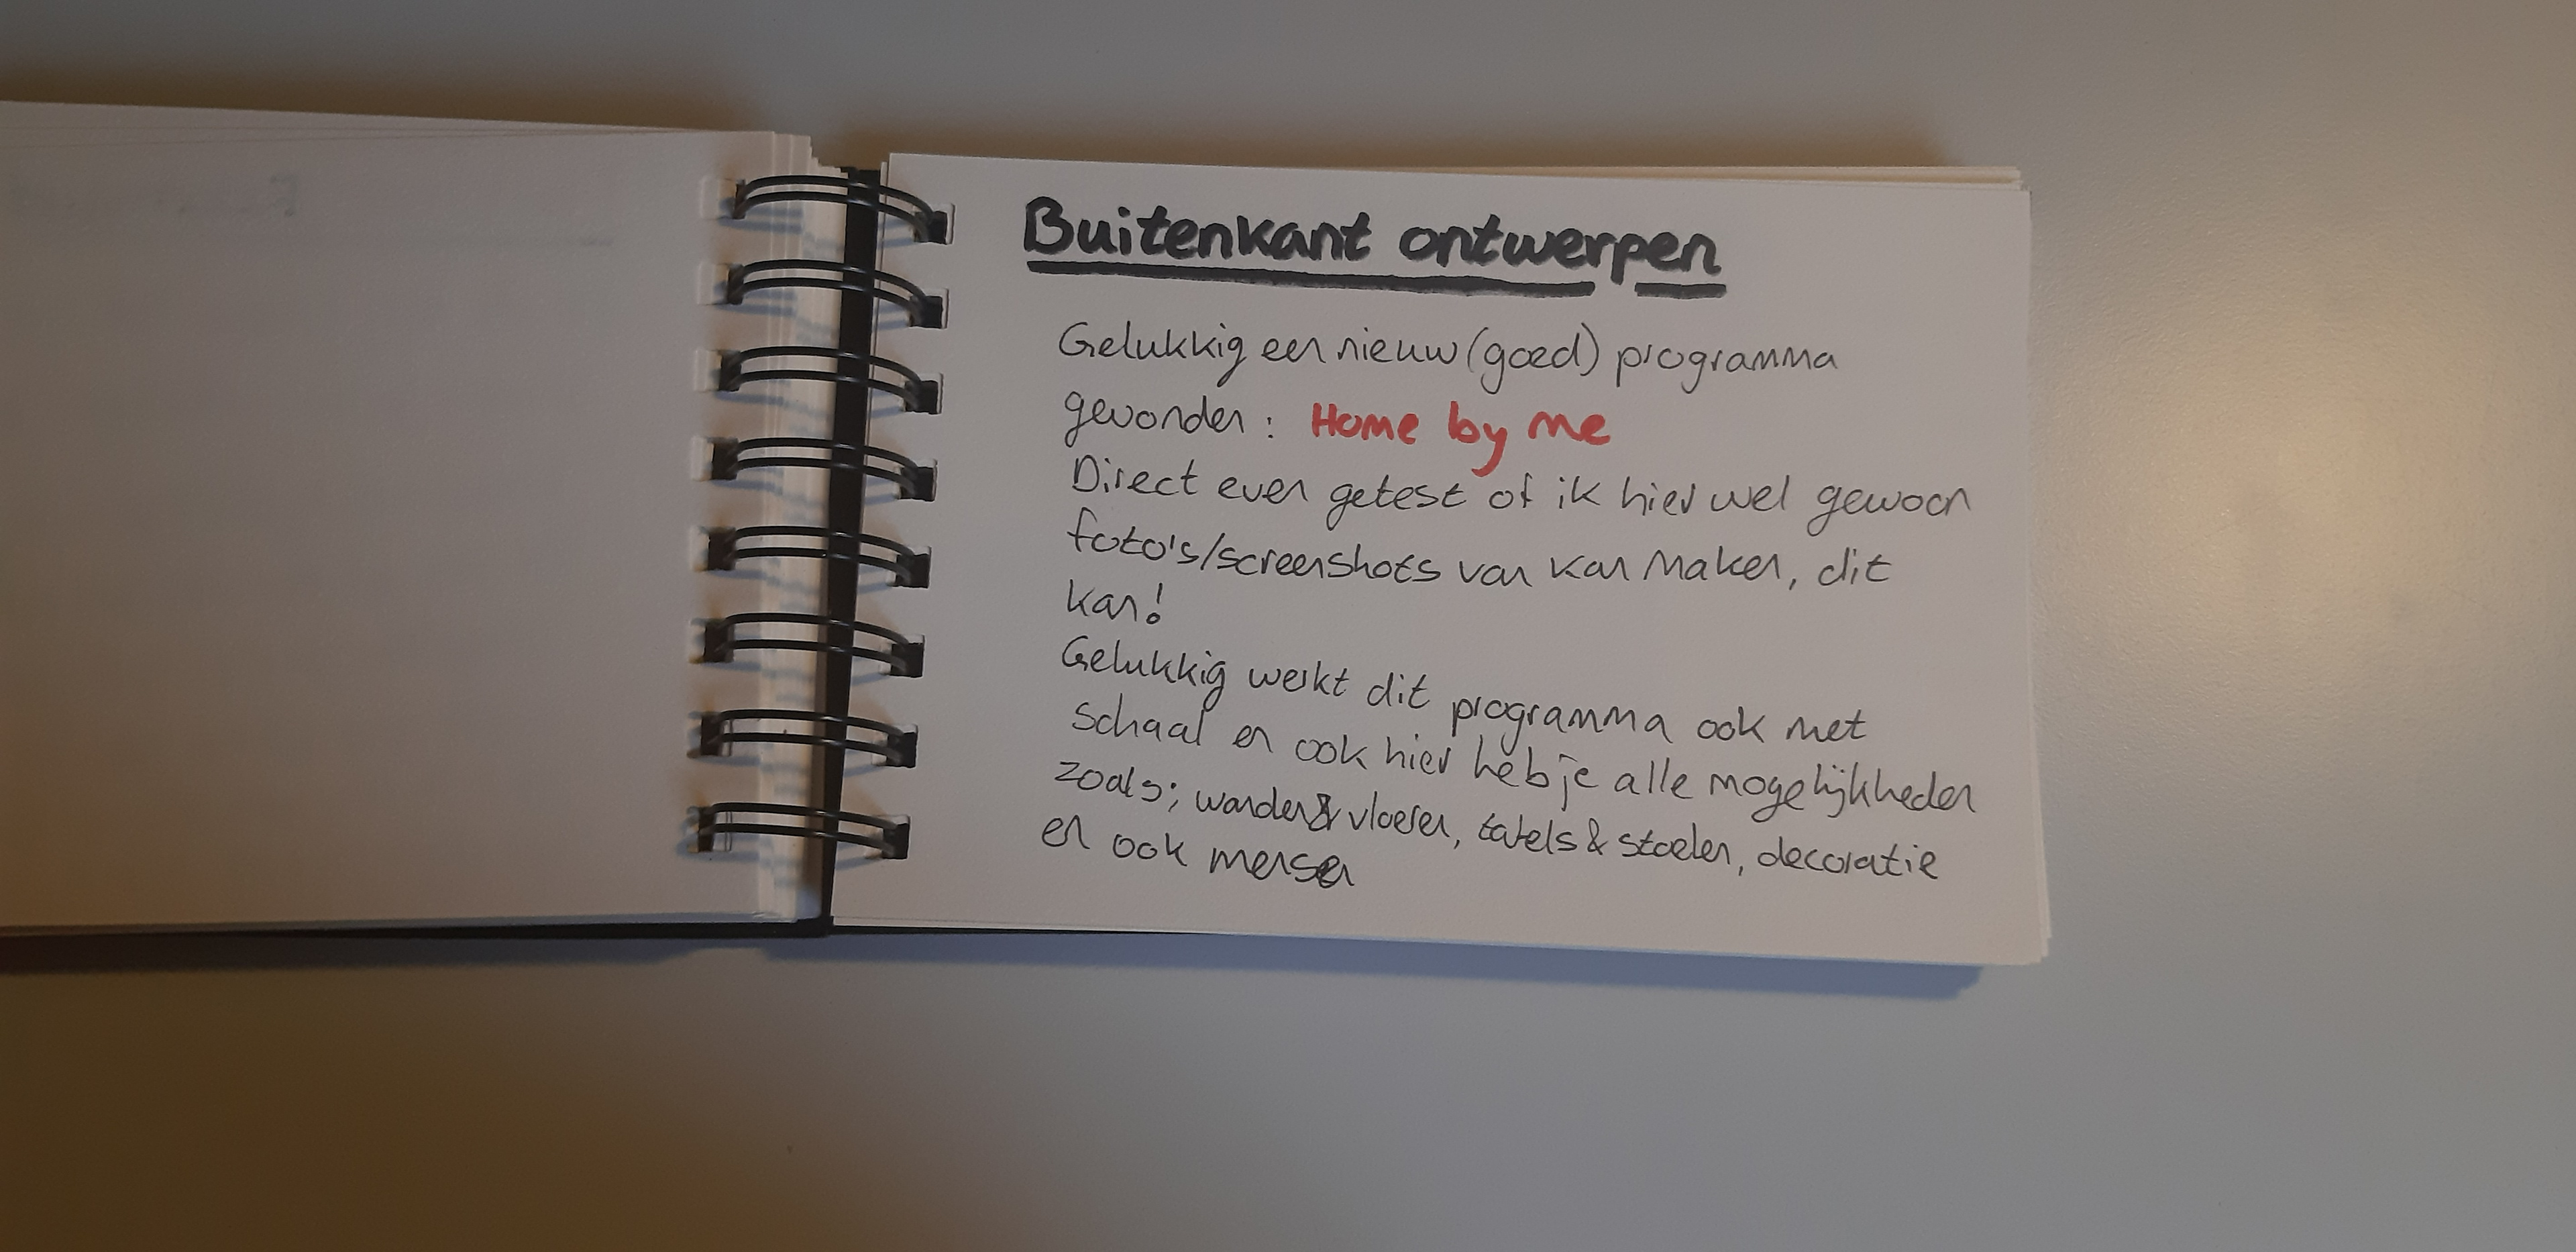 Buitenkant ontwerpen
Gelukkig een nieuw (goed) programma
gevonden: Home by me
Direct even getest of ik hier wel gewoon
foto's/screenshots van kan maken, dit
kan!
Gelukkig werkt dit programma ook met
schaal en ook hier heb je alle mogelijkheden
zoals; wanden & vloeren, tafels & stoelen, decoratie
en ook mensen